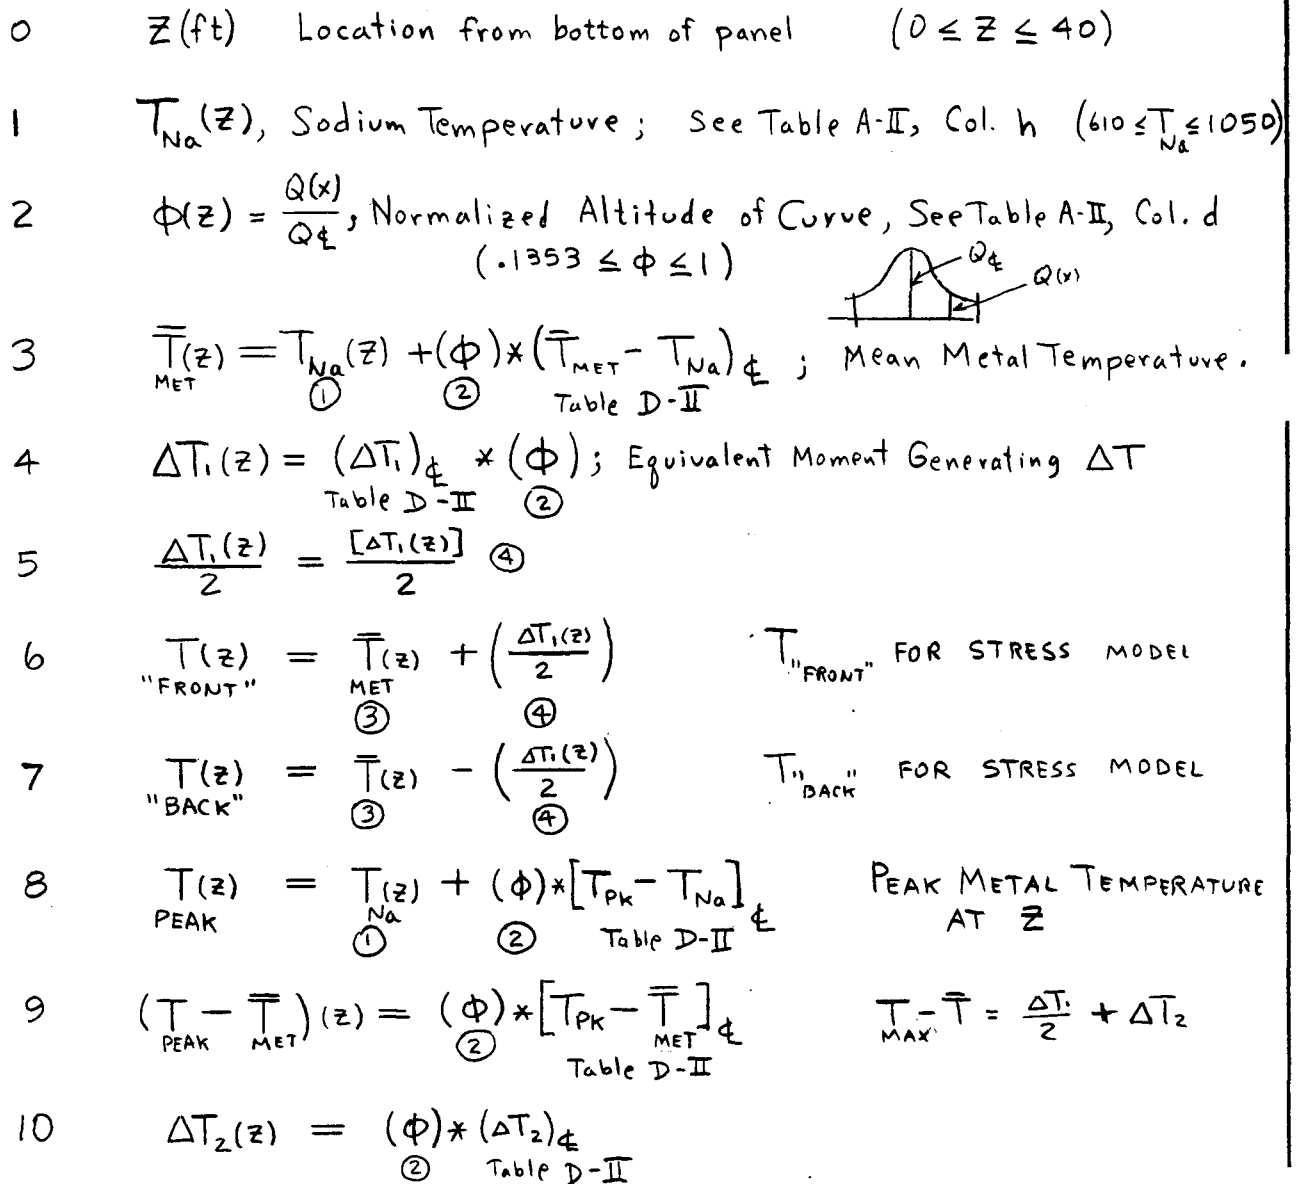 0 Z(ft) Location from bottom of panel (0 ≤ Z ≤ 40)
1 T_Na(Z), Sodium Temperature; See Table A-II, Col. h (610 ≤ T_Na ≤ 1050)
2 φ(z) = Q(x)/Q℄, Normalized Altitude of Curve, See Table A-II, Col. d
(.1353 ≤ φ ≤ 1)
Q℄
Q(x)
3 T̿(z) = T_Na(z) + (φ) * (T̅_MET - T_Na)℄ ; Mean Metal Temperature.
MET ① ② Table D-II
4 ΔT₁(z) = (ΔT₁)℄ * (φ); Equivalent Moment Generating ΔT
Table D-II ②
5 ΔT₁(z)/2 = [ΔT₁(z)]/2 ④
6 T(z) = T̿(z) + (ΔT₁(z)/2) T"FRONT" FOR STRESS MODEL
"FRONT" MET
③ ④
7 T(z) = T̿(z) - (ΔT₁(z)/2) T"BACK" FOR STRESS MODEL
"BACK" ③ ④
8 T(z) = T(z) + (φ)*[T_Pk - T_Na]℄ PEAK METAL TEMPERATURE
PEAK Na AT Z
① ② Table D-II
9 (T - T̿)(z) = (φ)*[T_PK - T̿]℄ T - T̿ = ΔT₁/2 + ΔT₂
PEAK MET ② MET MAX
Table D-II
10 ΔT₂(z) = (φ)*(ΔT₂)℄
② Table D-II